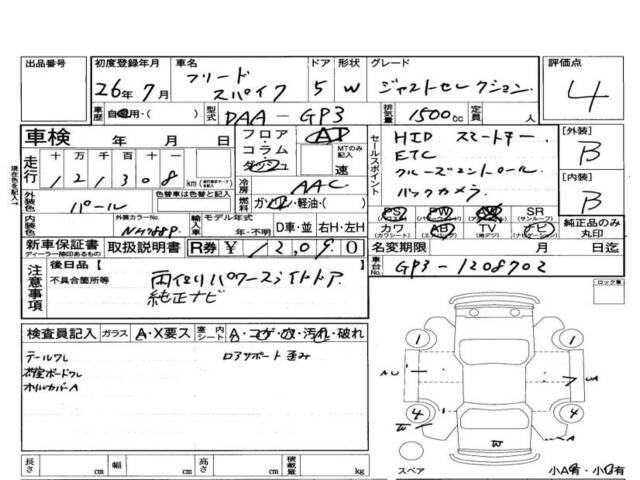 出品番号
初度登録年月
26年 7月
車名
フリード
スパイク
ドア 形状
5 W
グレード
ジャストセレクション
評価点
4
車歴 自家用・( )
型式 DAA-GP3
排気量 1500cc
定員 人
車検 年 月 日
走行
十 万 千 百 十 一
1 2 1 3 0 8 km
現在色を記入→
フロア
コラム
ダッシュ
AT
MTのみ記入
速
セールスポイント
HID スマートキー.
ETC
クルーズコントロール
バックカメラ.
[外装]
B
[内装]
B
外装色 パール
色替車は色替と記入
冷房 AAC
燃料 ガソリン・軽油・( )
PS PW AW SR
(パワステ) (サンルーフ)
カワ AB TV ナビ
(カワシート) (エアバッグ) (ナビゲーション)
純正品のみ
丸印
内装色
外装カラーNo.
NH788P
輸入車 モデル年式
年・不明 D車・並 右H・左H
新車保証書 取扱説明書
ディーラー捺印あるもの
R券 ¥12,090
名変期限 月 日迄
車台No. GP3-1208702
注意事項
後日品[ ]
不具合箇所等
両側パワースライドドア
純正ナビ
ロック車
検査員記入 ガラス A・X要ス 室内シート A・コゲ・穴・汚れ・破れ
テールワレ
荷室ボードワレ
オイルカバーA
ロアサポート歪み
1 1
4 4
W
A
W
長さ cm 幅 cm 高さ cm 積載量 kg
スペア
小A有・小U有